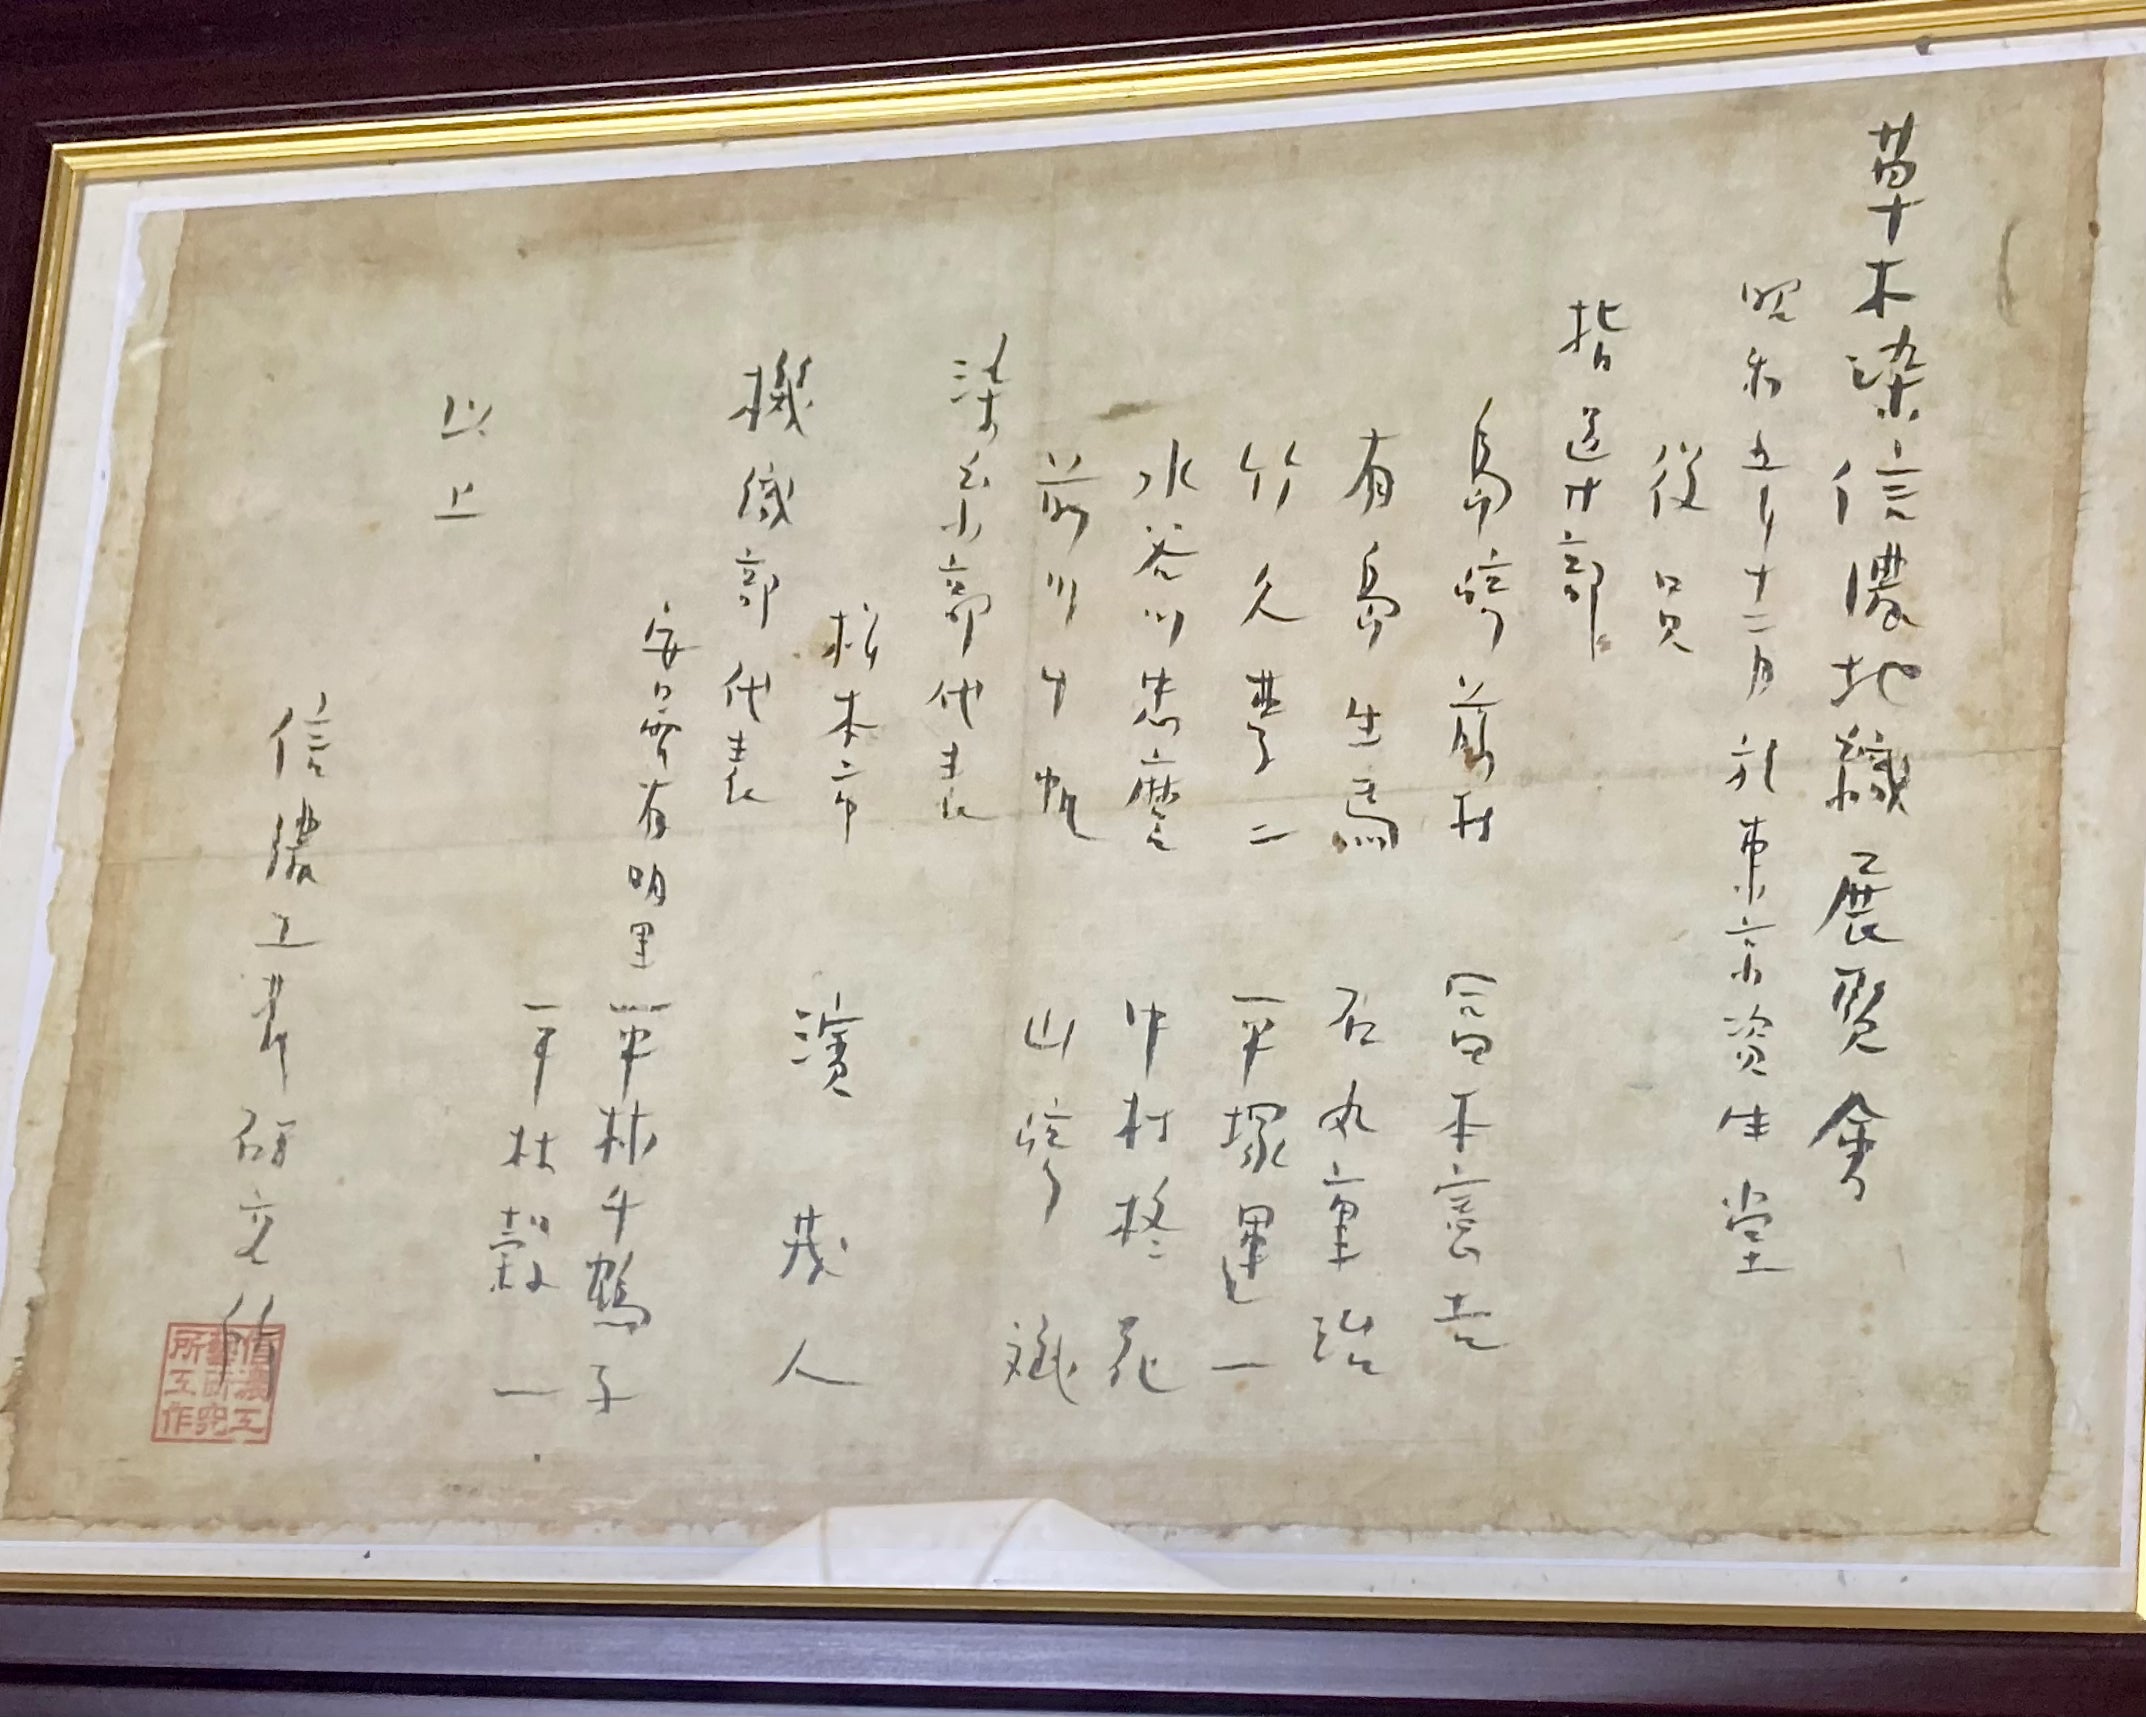 草木染信濃地織展覧会
昭和五年十二月於東京資生堂
役員
指導部
島崎藤村 富本憲吉
有島生馬 石丸重治
竹久夢二 平塚運一
水谷川忠麿 中村柊花
前川千帆 山崎斌
染糸部代表
松本市 濱茂人
機織部代表
安曇有明里 平林千鶴子
平林穀一
以上
信濃工芸研究所